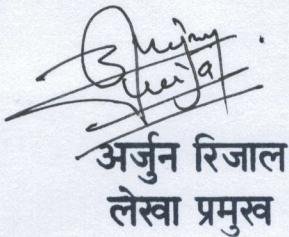 अर्जुन रिजाल
लेखा प्रमुख